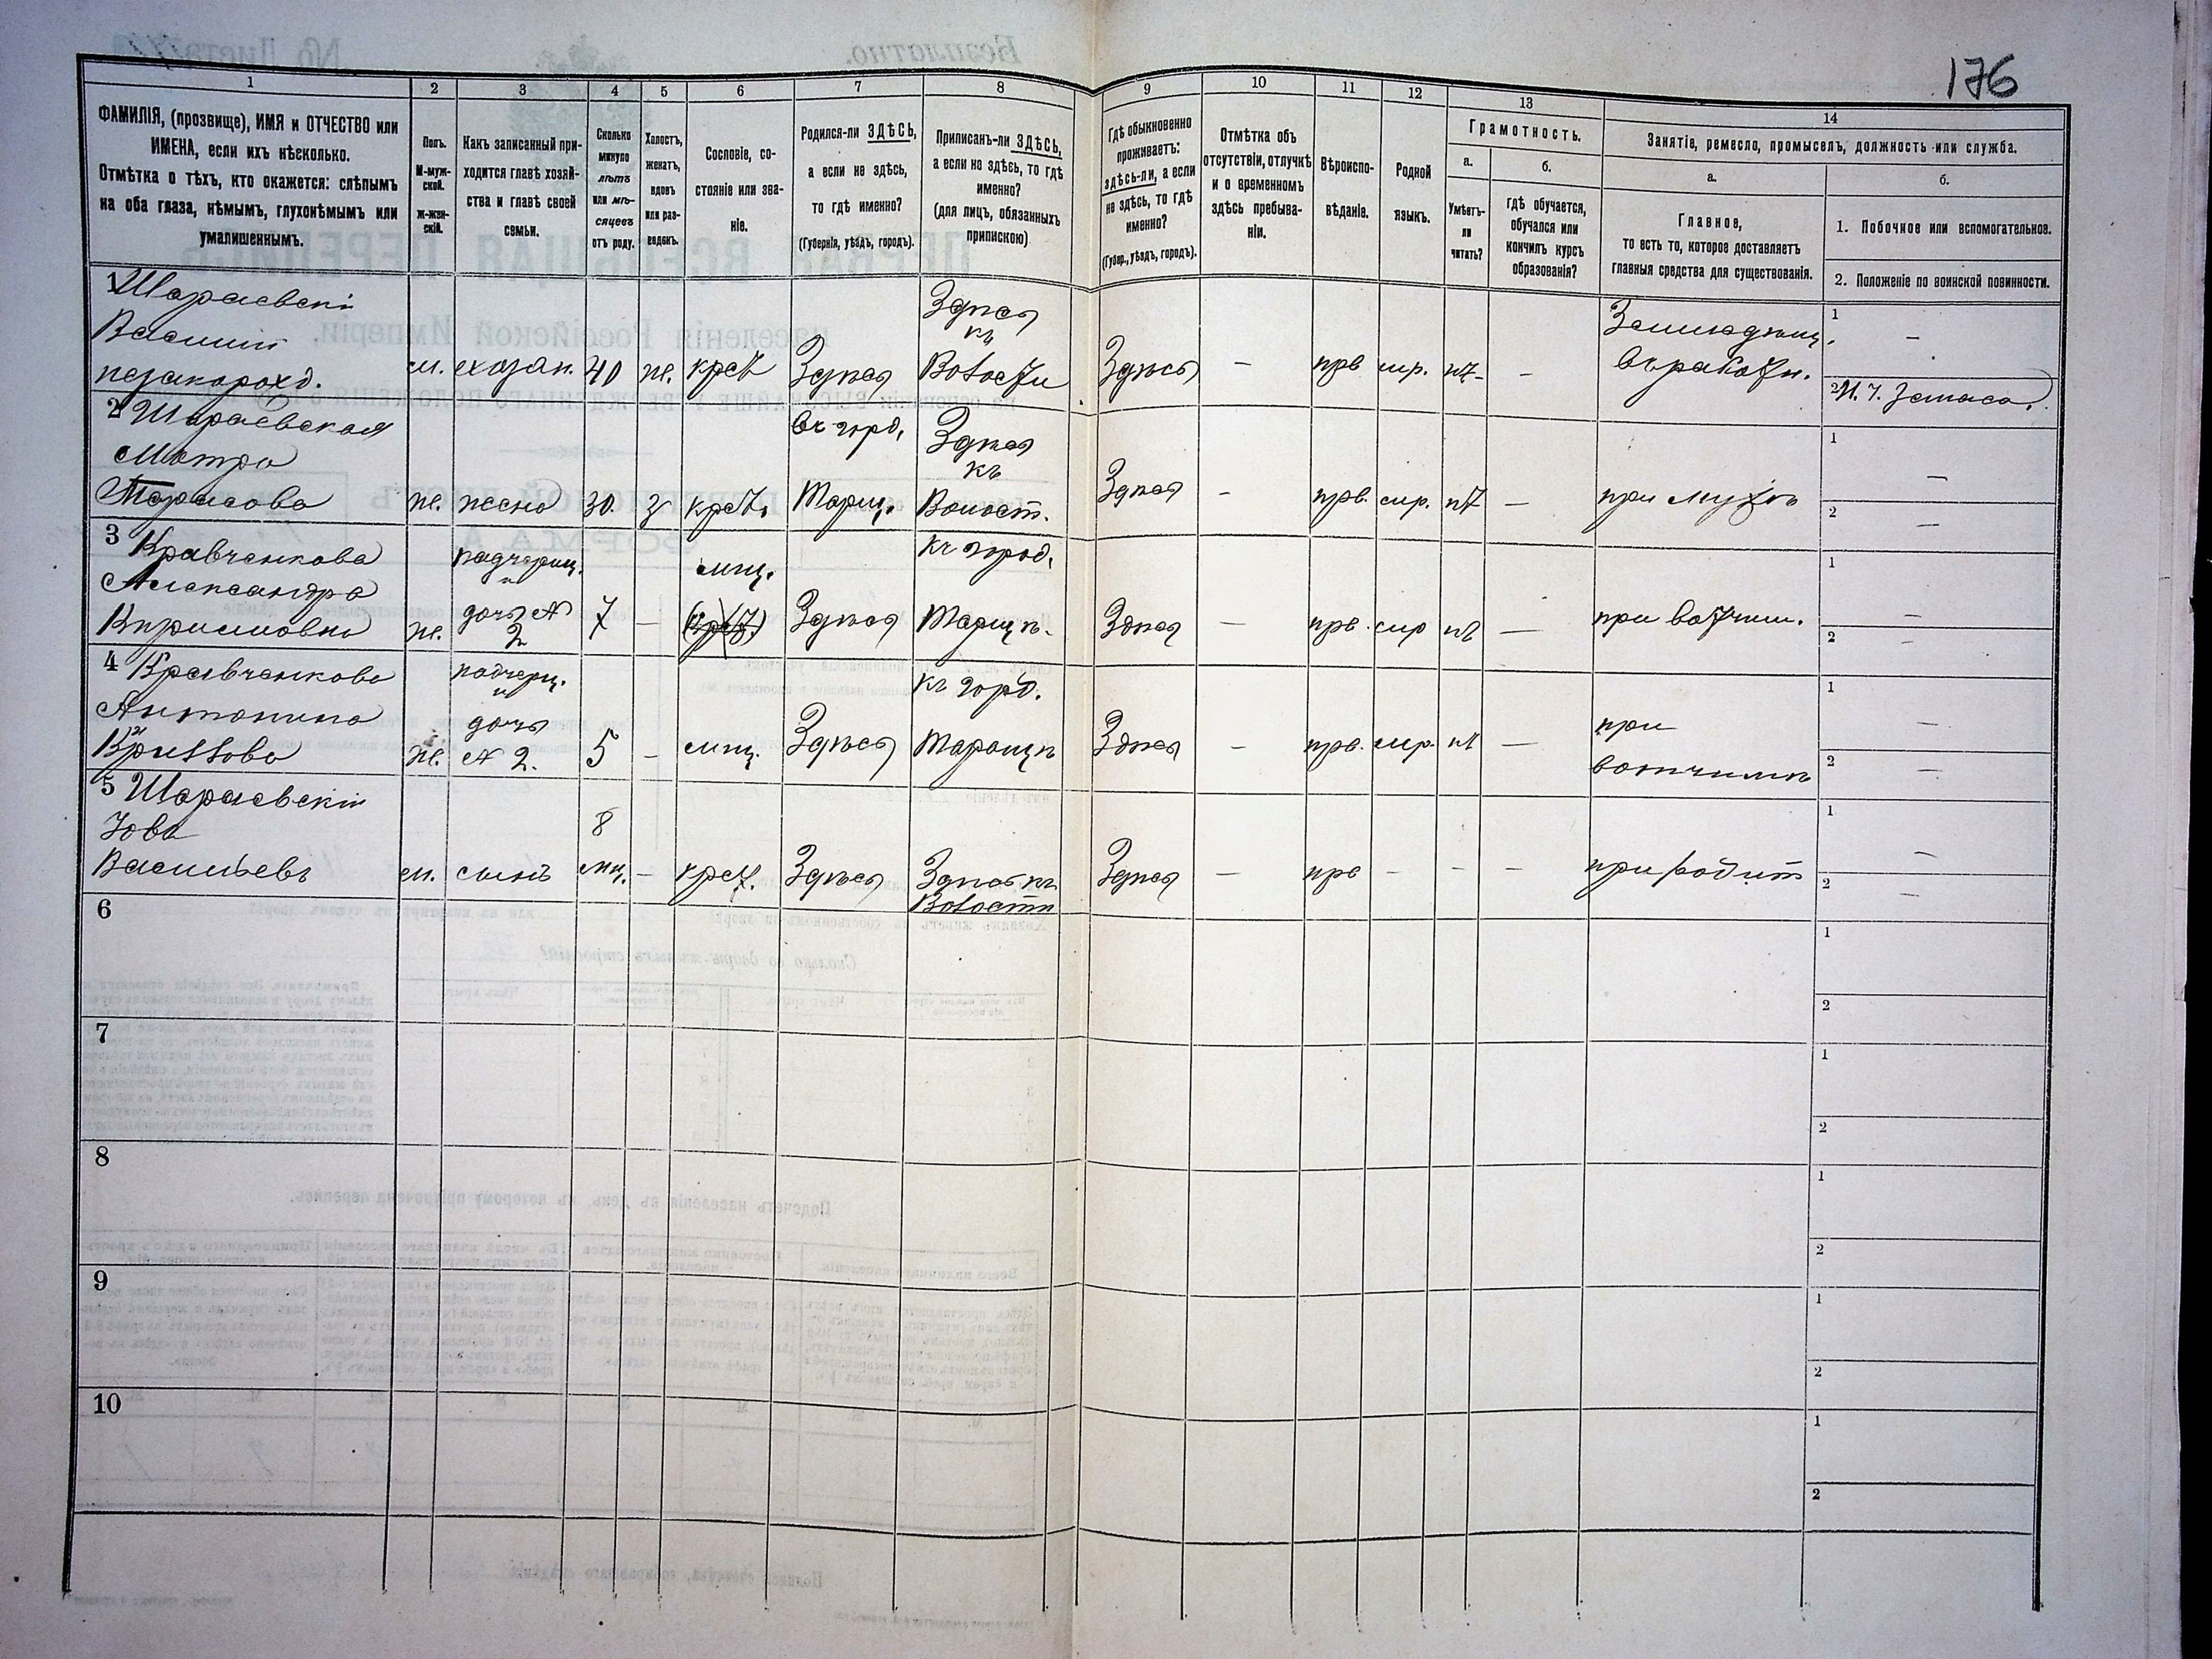 176
1
2
3
4
5
6
7
8
9
10
11
12
13
14
ФАМИЛІЯ, (прозвище), ИМЯ и ОТЧЕСТВО или
ИМЕНА, если ихъ нѣсколько.
Отмѣтка о тѣхъ, кто окажется: слѣпымъ
на оба глаза, нѣмымъ, глухонѣмымъ или
умалишеннымъ.
Полъ.
М-муж-
ской.
Ж-жен-
скій.
Какъ записанный при-
ходится главѣ хозяй-
ства и главѣ своей
семьи.
Сколько
минуло
лѣтъ
или мѣ-
сяцевъ
отъ роду.
Холостъ,
женатъ,
вдовъ
или раз-
веденъ.
Сословіе, со-
стояніе или зва-
ніе.
Родился-ли ЗДѢСЬ,
а если не здѣсь,
то гдѣ именно?
(Губернія, уѣздъ, городъ).
Приписанъ-ли ЗДѢСЬ,
а если не здѣсь, то гдѣ
именно?
(для лицъ, обязанныхъ
припискою)
Гдѣ обыкновенно
проживаетъ:
здѣсь-ли, а если
не здѣсь, то гдѣ
именно?
(Губер., уѣздъ, городъ).
Отмѣтка объ
отсутствіи, отлучкѣ
и о временномъ
здѣсь пребыва-
ніи.
Вѣроиспо-
вѣданіе.
Родной
языкъ.
Грамотность.
а.
б.
Умѣетъ-
ли
читать?
гдѣ обучается,
обучался или
кончилъ курсъ
образованія?
Занятіе, ремесло, промыселъ, должность или служба.
а.
б.
Главное,
то есть то, которое доставляетъ
главныя средства для существованія.
1. Побочное или вспомогательное.
2. Положеніе по воинской повинности.
1 Шараевскі
Василій
незакорожд.
м.
хозяи.
40
ж.
крест
Здѣсь
Здѣсь
къ
Волости
Здѣсь
—
прв
мр.
нѣт
-
Земледѣлец.
1
-
2
2 Шараевская
Мотря
Тарасова
же.
жена
30.
З
крест.
въ гор.
Таращ.
Здѣсь
къ
Волост.
Здѣсь
-
прв.
мр.
нѣт
—
при мужѣ
1
—
2
—
3 Кравченкова
Александра
Кириловна
же.
падчериц.
и
дочь №
2
7
—
мѣщ.
Здѣсь
къ город.
Таращѣ.
Здѣсь
—
прв.
мр
нѣт
—
при вотчим.
1
—
2
—
4 Кравченкова
Антонина
же.
падчериц.
и
дочь
№ 2.
5
-
мѣщ.
Здѣсь
къ гор.
Таращѣ
Здѣсь
-
прв.
мр.
нѣт
—
при
вотчимѣ
1
—
2
—
5 Шараевскій
Іова
Васильевъ
м.
сынъ
8
мц.
-
крест.
Здѣсь
Здѣсь къ
Волости
Здѣсь
—
прв
-
-
-
при родит
1
—
2
—
6
1
2
7
1
2
8
1
2
9
1
2
10
1
2